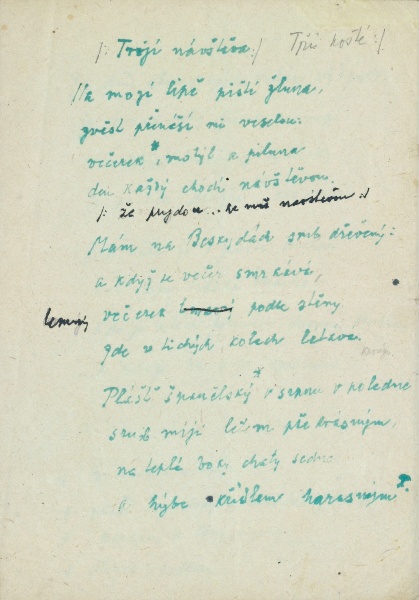 /: Trojí návštěva :/ Tři hosté :/
Na mojí lípě piští žluna,
zvěst přináší mi veselou:
večerek*, motýl a piluna
den každý chodí návštěvou.
/: že přijdou... ke mně návštěvou :/
Mám na Beskydách srub dřevěný:
a když se večer smrkává,
večerek podle stěny
jde v tichých kolech létává.
Plášť španělský* v srpnu v poledne
srub míjí letem překrásným,
na teplé boky chaty sedne
a hýbe křídlem harasným